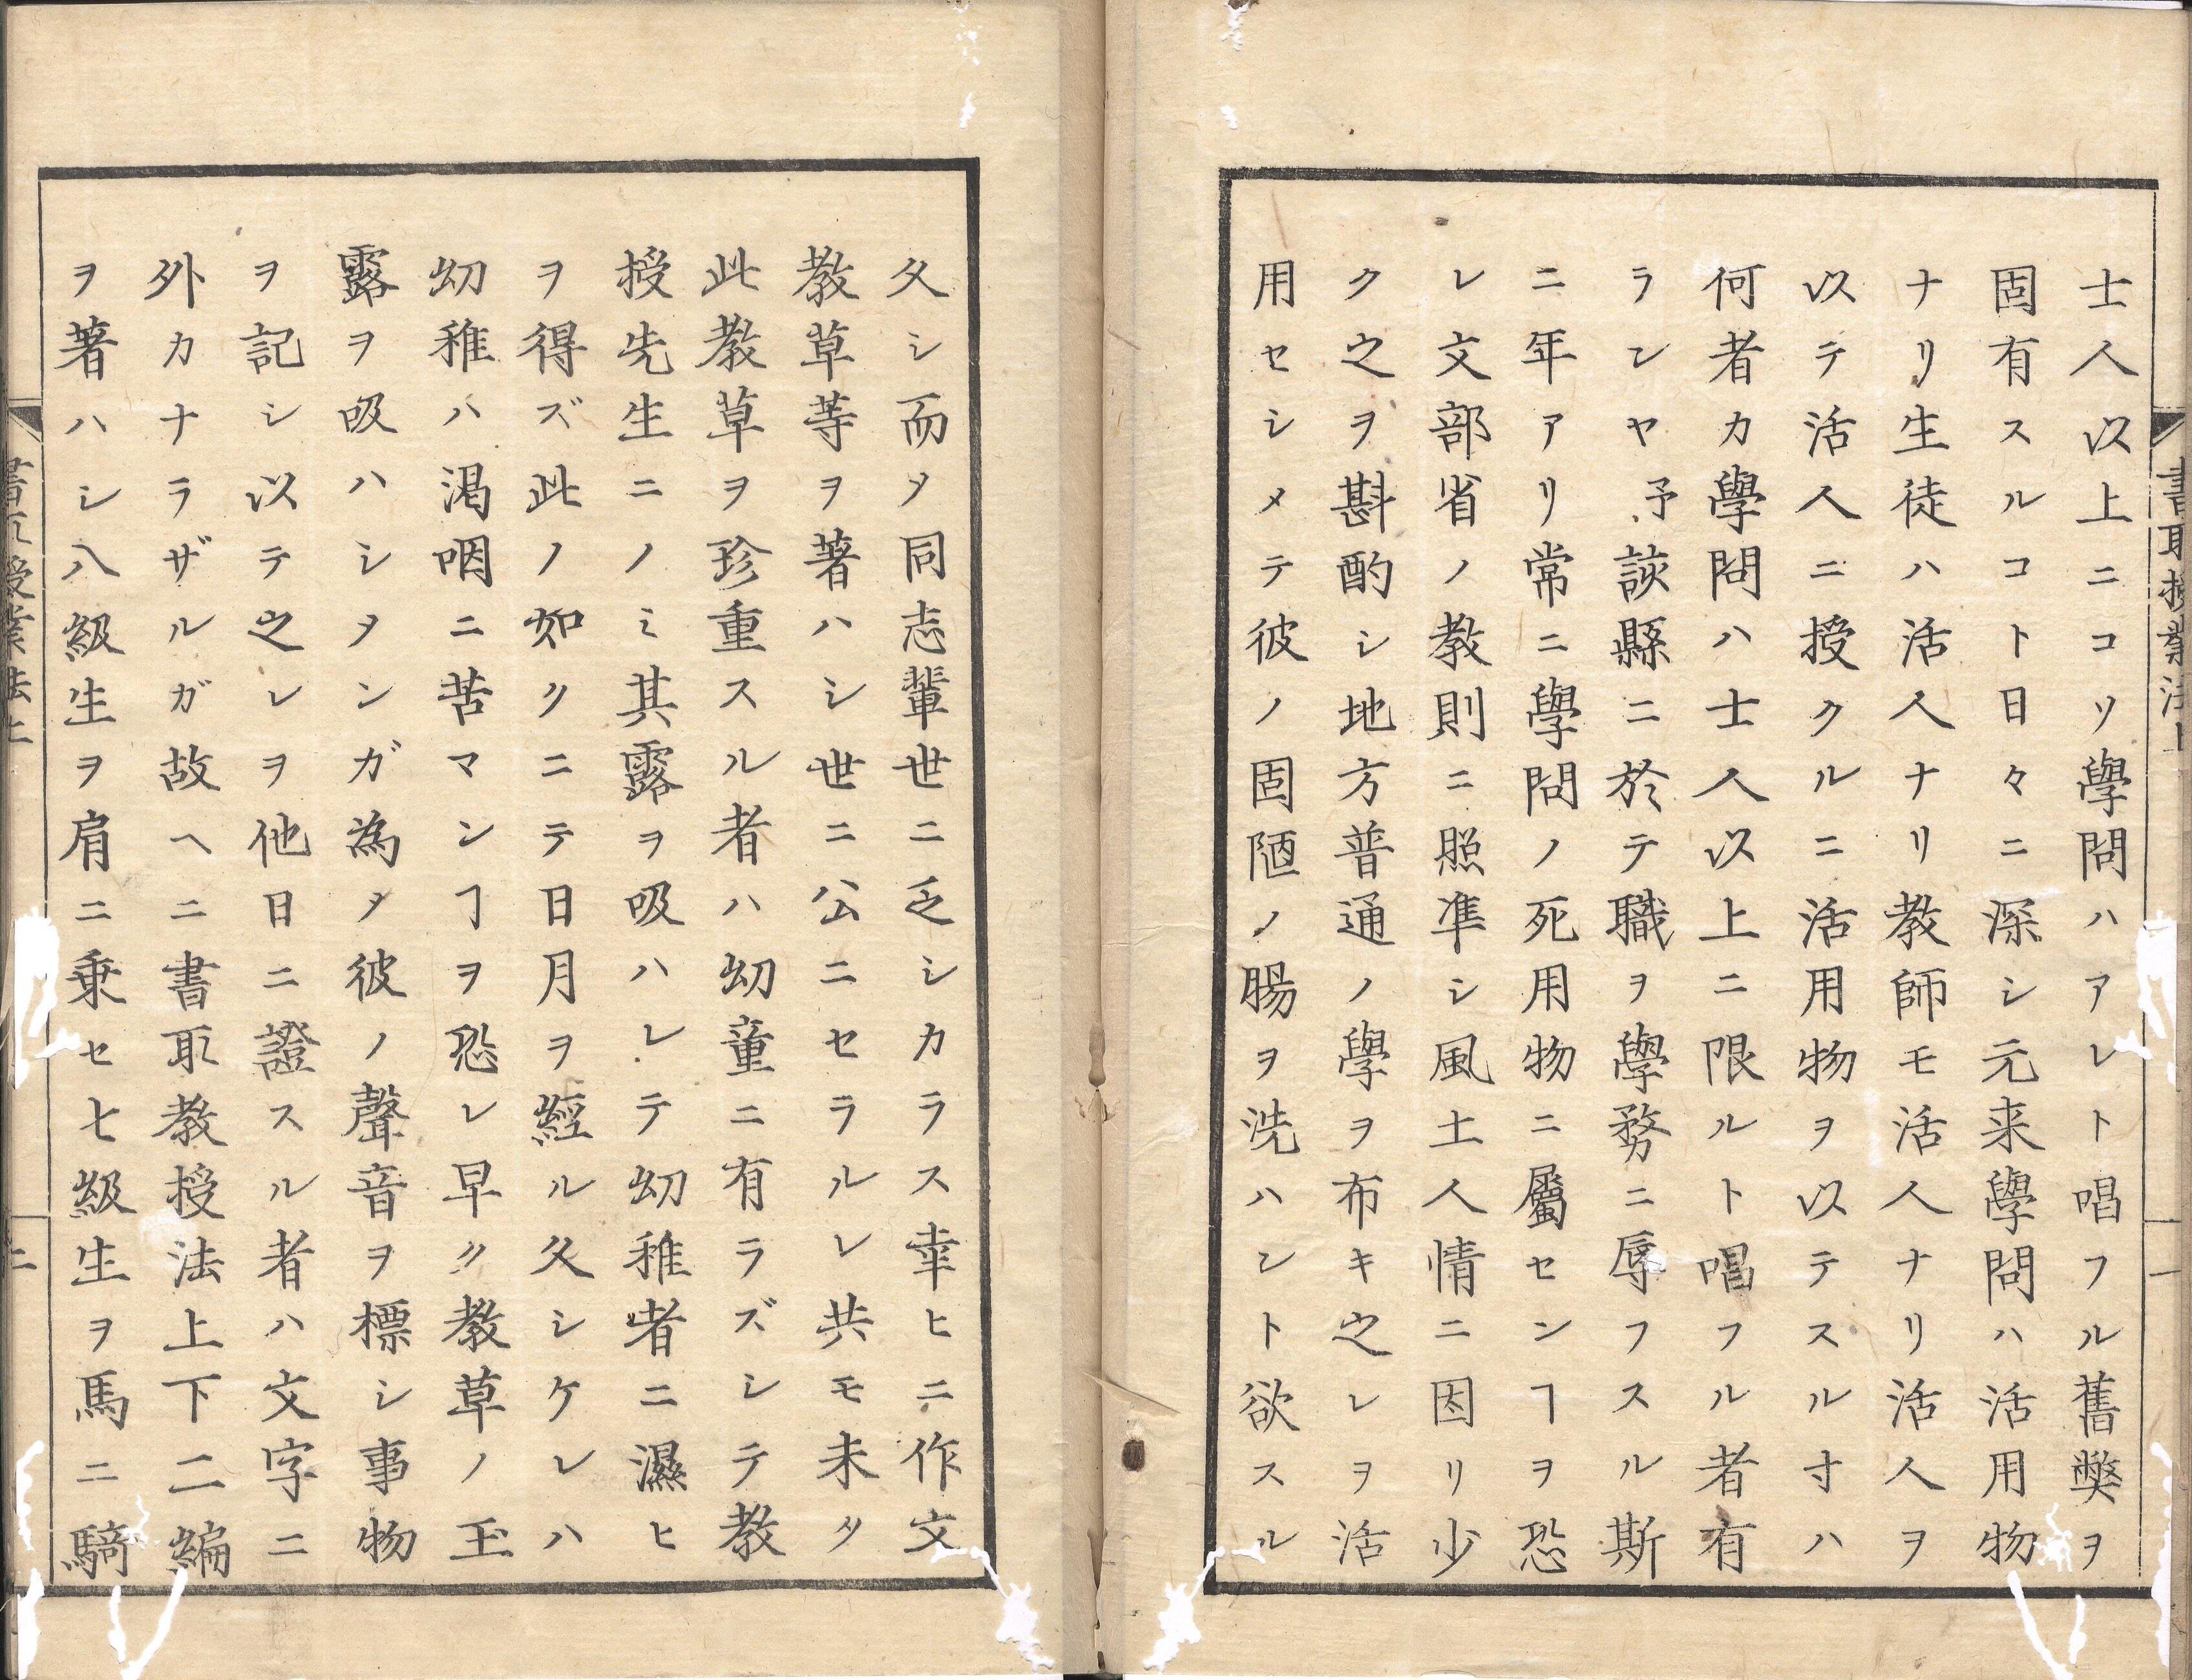 士人以上ニコソ學問ハアレト唱フル舊弊ヲ
固有スルコト日々ニ深シ元来學問ハ活用物
ナリ生徒ハ活人ナリ教師モ活人ナリ活人ヲ
以テ活人ニ授クルニ活用物ヲ以テスル寸ハ
何者カ學問ハ士人以上ニ限ルト唱フル者有
ランヤ予該縣ニ於テ職ヲ學務ニ辱フスル斯
ニ年アリ常ニ學問ノ死用物ニ屬センヿヲ恐
レ文部省ノ教則ニ照準シ風土人情ニ因リ少
ク之ヲ斟酌シ地方普通ノ學ヲ布キ之レヲ活
用セシメテ彼ノ固陋ノ腸ヲ洗ハント欲スル
久シ而〆同志輩世ニ乏シカラス幸ヒニ作文
教草等ヲ著ハシ世ニ公ニセラルレ共モ未タ
此教草ヲ珍重スル者ハ幼童ニ有ラズシテ教
授先生ニノミ其露ヲ吸ハレテ幼稚者ニ濕ヒ
ヲ得ズ此ノ如クニテ日月ヲ經ル久シケレハ
幼稚ハ渇咽ニ苦マンヿヲ恐レ早ク教草ノ玉
露ヲ吸ハシメンガ為メ彼ノ聲音ヲ標シ事物
ヲ記シ以テ之レヲ他日ニ證スル者ハ文字ニ
外カナラザルガ故ヘニ書取教授法上下二編
ヲ著ハシ八級生ヲ肩ニ乗セ七級生ヲ馬ニ騎
書取授業法上
一
書取授業法上
二